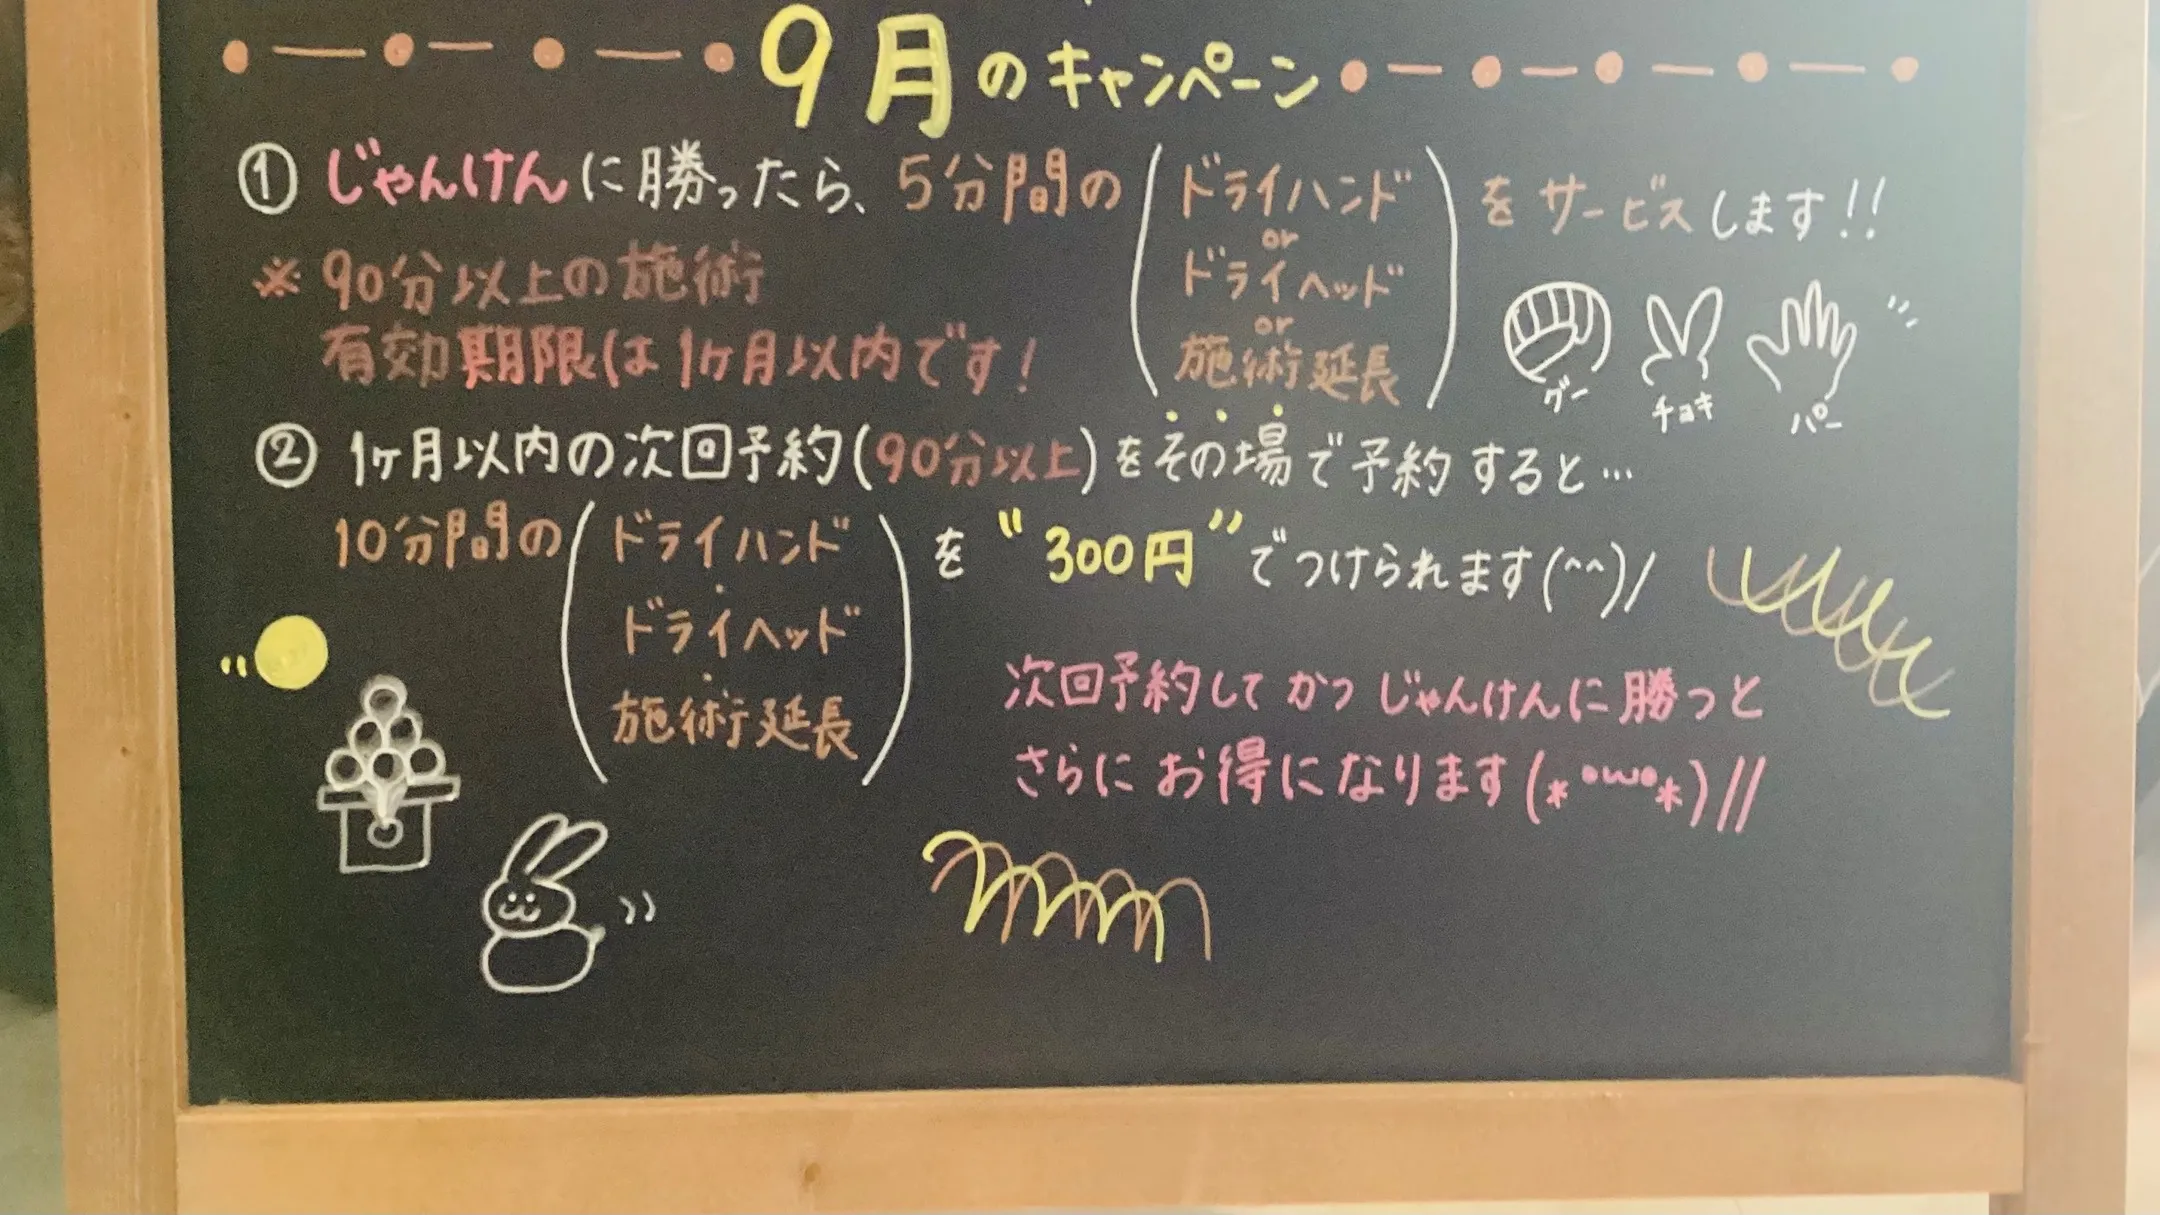 9月のキャンペーン
① じゃんけんに勝ったら、5分間の(ドライハンド or ドライヘッド or 施術延長)をサービスします!!
※90分以上の施術
有効期限は1ヶ月以内です!
グー チョキ パー
② 1ヶ月以内の次回予約(90分以上)をその場で予約すると…
10分間の(ドライハンド・ドライヘッド・施術延長)を"300円"でつけられます(^^)/
次回予約してかつじゃんけんに勝つと
さらにお得になります(*°ω°*)//